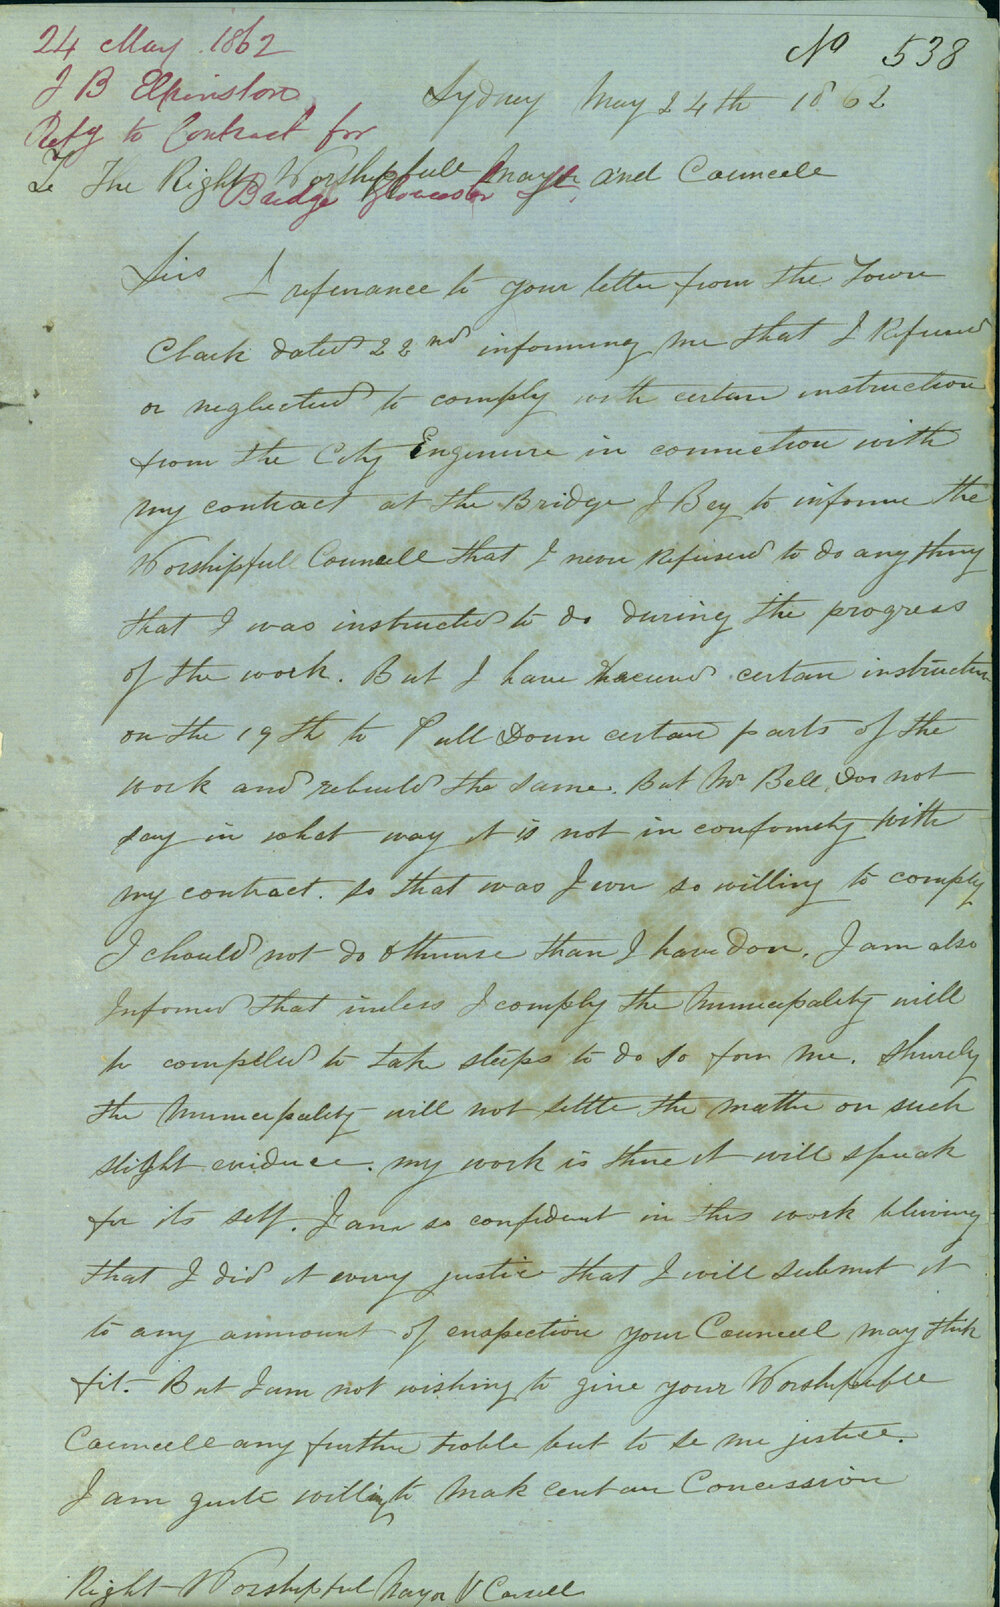 24 May 1862
J B Elphinston
Refg to Contract for
Bridge Gloucester St.
No 538
Sydney May 24th 1862
To The Right Worshipfull Mayor and Councele
Sirs I referance to your letter from the Town
Clark dated 22nd informing me that I Refused
or neglected to comply with certan instruction
from the City Enginure in connection with
my contract at the Bridge I Beg to informe the
Worshipfull Councell that I never Refused to do any thing
that I was instructed to do during the progress
of the work. But I have Receved certan instruction
on the 19th to Pull Down certan parts of the
work and rebuild the same. But Mr Bell Dos not
say in what way it is not in confomety with
my contract. so that was I ever so willing to comply
I chould not do otherwise than I have Don. I am also
Infomed that unless I comply the Municepality will
be compeled to take steps to do so form me. Shurely
the Municepality will not settle the matter on such
slight evidence. my work is there it will speak
for its self. I am so confident in this work bliving
that I did it every justice that I will submit it
to any ammount of enspection your Councell may think
fit. But I am not wishing to give your Worshipfull
Councele any further troble but to se me justice.
I am quite willing to Mak certan Concession
Right Worshipful Mayor & Concell